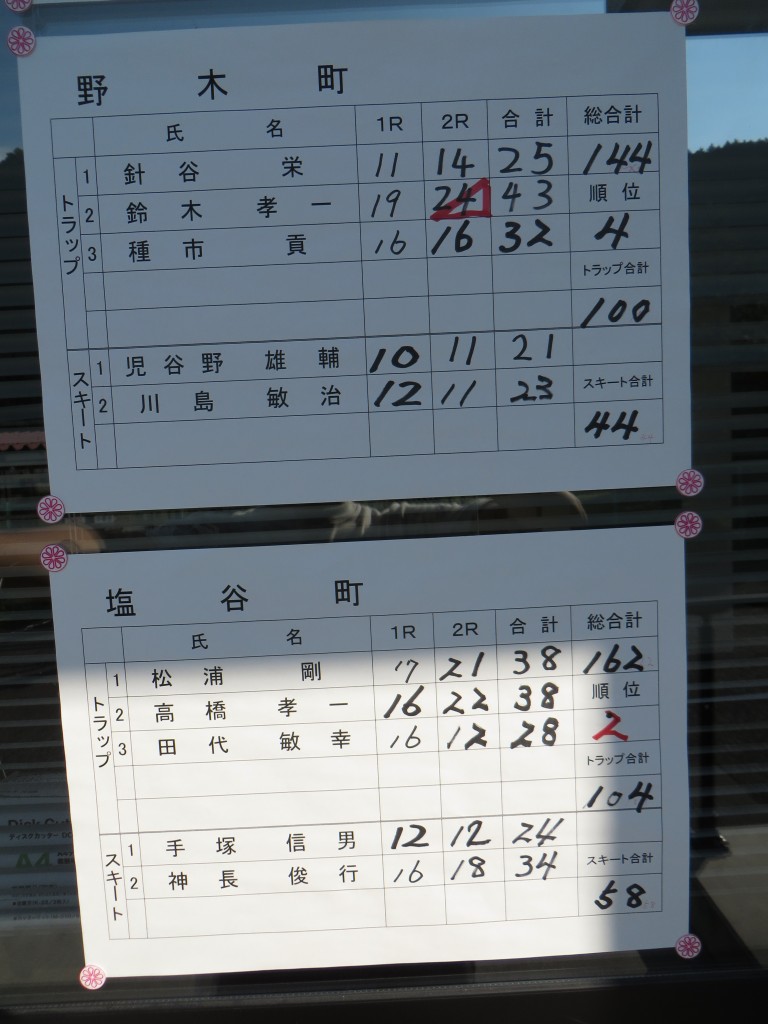 野木町
氏名 1R 2R 合計 総合計
トラップ
1 針谷 栄 11 14 25 144
2 鈴木 孝一 19 24 43 順位
3 種市 貢 16 16 32 4
トラップ合計
100
スキート
1 児谷野 雄輔 10 11 21
2 川島 敏治 12 11 23 スキート合計
44
塩谷町
氏名 1R 2R 合計 総合計
トラップ
1 松浦 剛 17 21 38 162
2 高橋 孝一 16 22 38 順位
3 田代 敏幸 16 12 28 2
トラップ合計
104
スキート
1 手塚 信男 12 12 24
2 神長 俊行 16 18 34 スキート合計
58